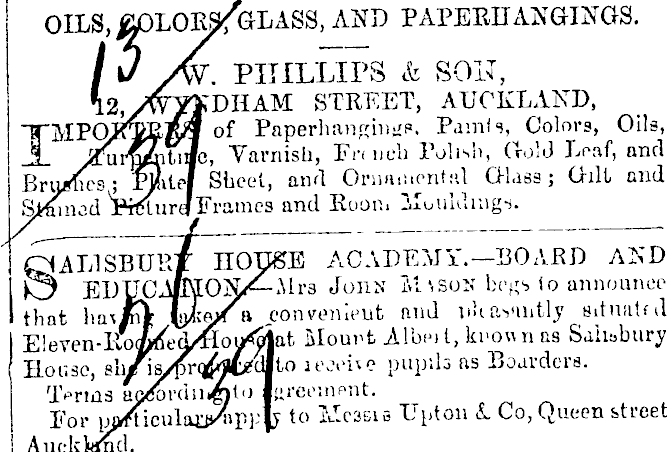 OILS, COLORS, GLASS, AND PAPERHANGINGS.
13
39
W. PHILLIPS & SON,
12, WYNDHAM STREET, AUCKLAND,
IMPORTERS of Paperhangings, Paints, Colors, Oils,
Turpentine, Varnish, French Polish, Gold Leaf, and
Brushes; Plate, Sheet, and Ornamental Glass; Gilt and
Stained Picture Frames and Room Mouldings.
SALISBURY HOUSE ACADEMY.—BOARD AND
EDUCATION.—Mrs JOHN MASON begs to announce
that having taken a convenient and pleasantly situated
Eleven-Roomed House at Mount Albert, known as Salisbury
House, she is prepared to receive pupils as Boarders.
21
39
Terms according to agreement.
For particulars apply to Messrs Upton & Co, Queen street
Auckland.